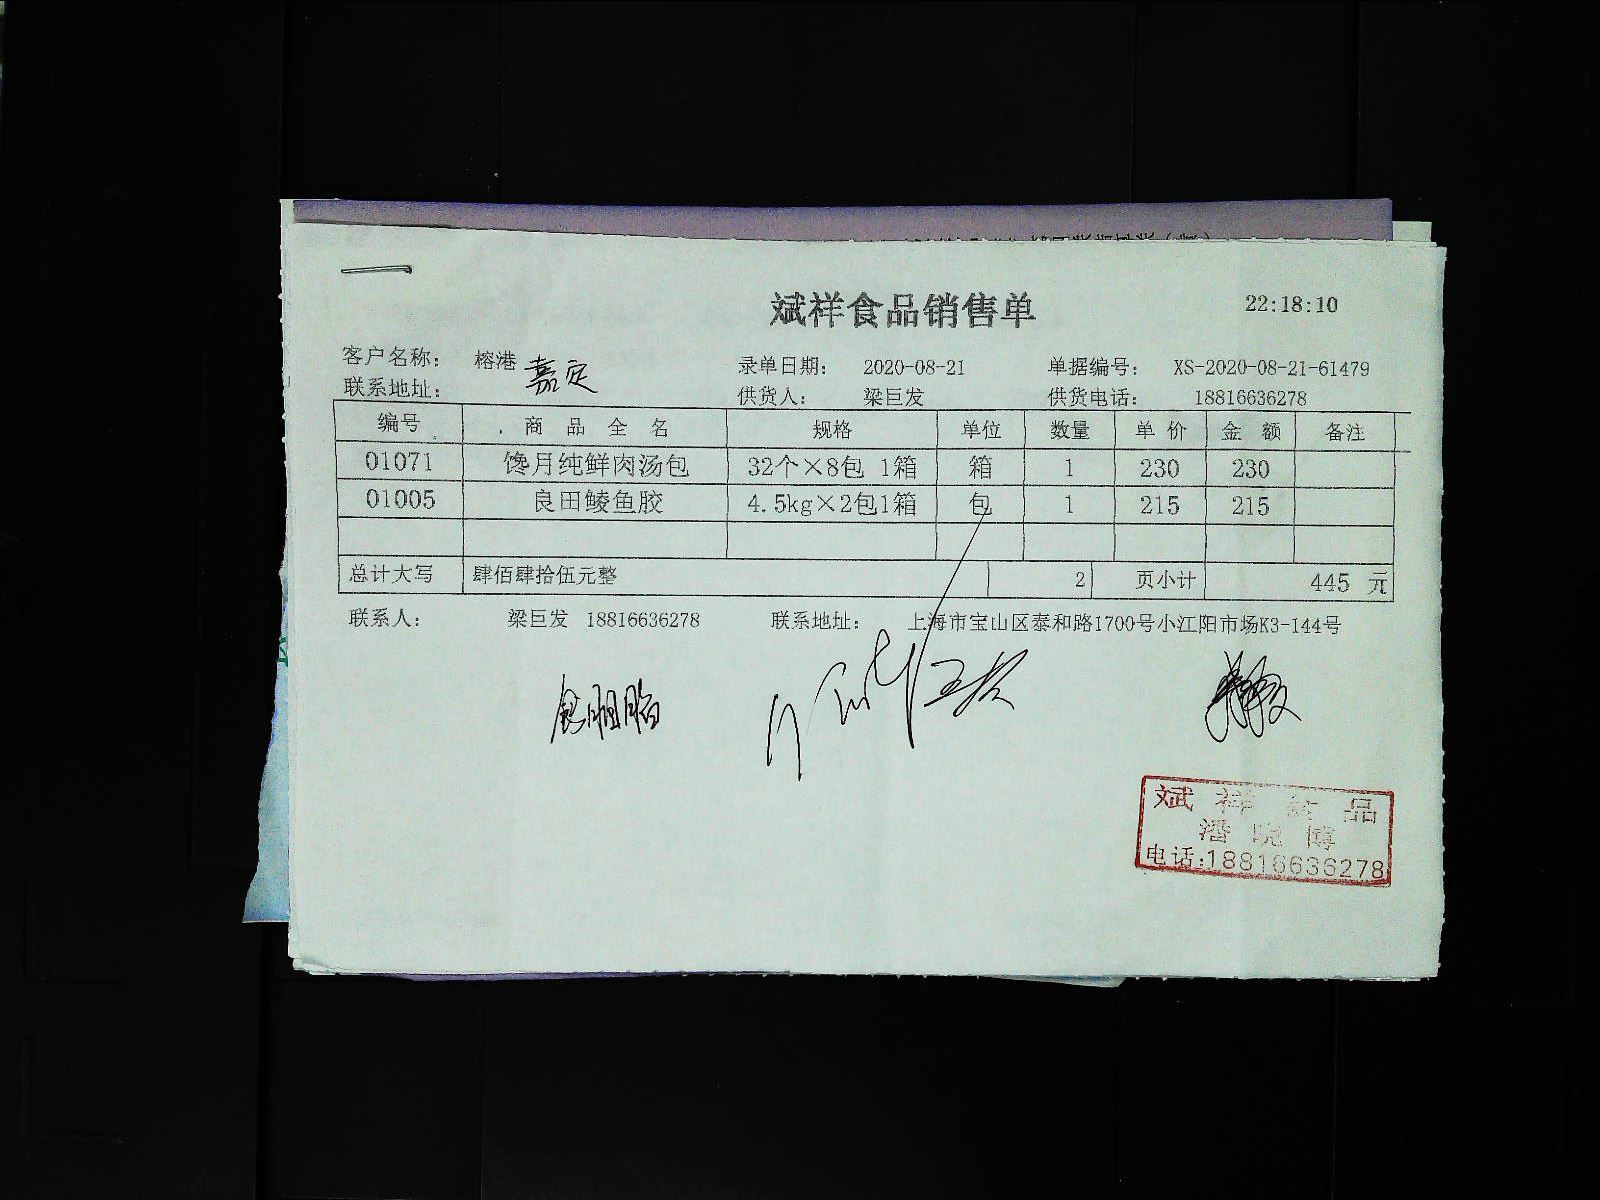 斌祥食品销售单 22:18:10
客户名称: 榕港 嘉定 录单日期: 2020-08-21 单据编号: XS-2020-08-21-61479
联系地址: 供货人: 梁巨发 供货电话: 18816636278
编号 商品全名 规格 单位 数量 单价 金额 备注
01071 馋月纯鲜肉汤包 32个×8包 1箱 箱 1 230 230
01005 良田鲮鱼胶 4.5kg×2包1箱 包 1 215 215
总计大写 肆佰肆拾伍元整 2 页小计 445 元
联系人: 梁巨发 18816636278 联系地址: 上海市宝山区泰和路1700号小江阳市场K3-144号
斌祥食品
潘晓博
电话:18816636278